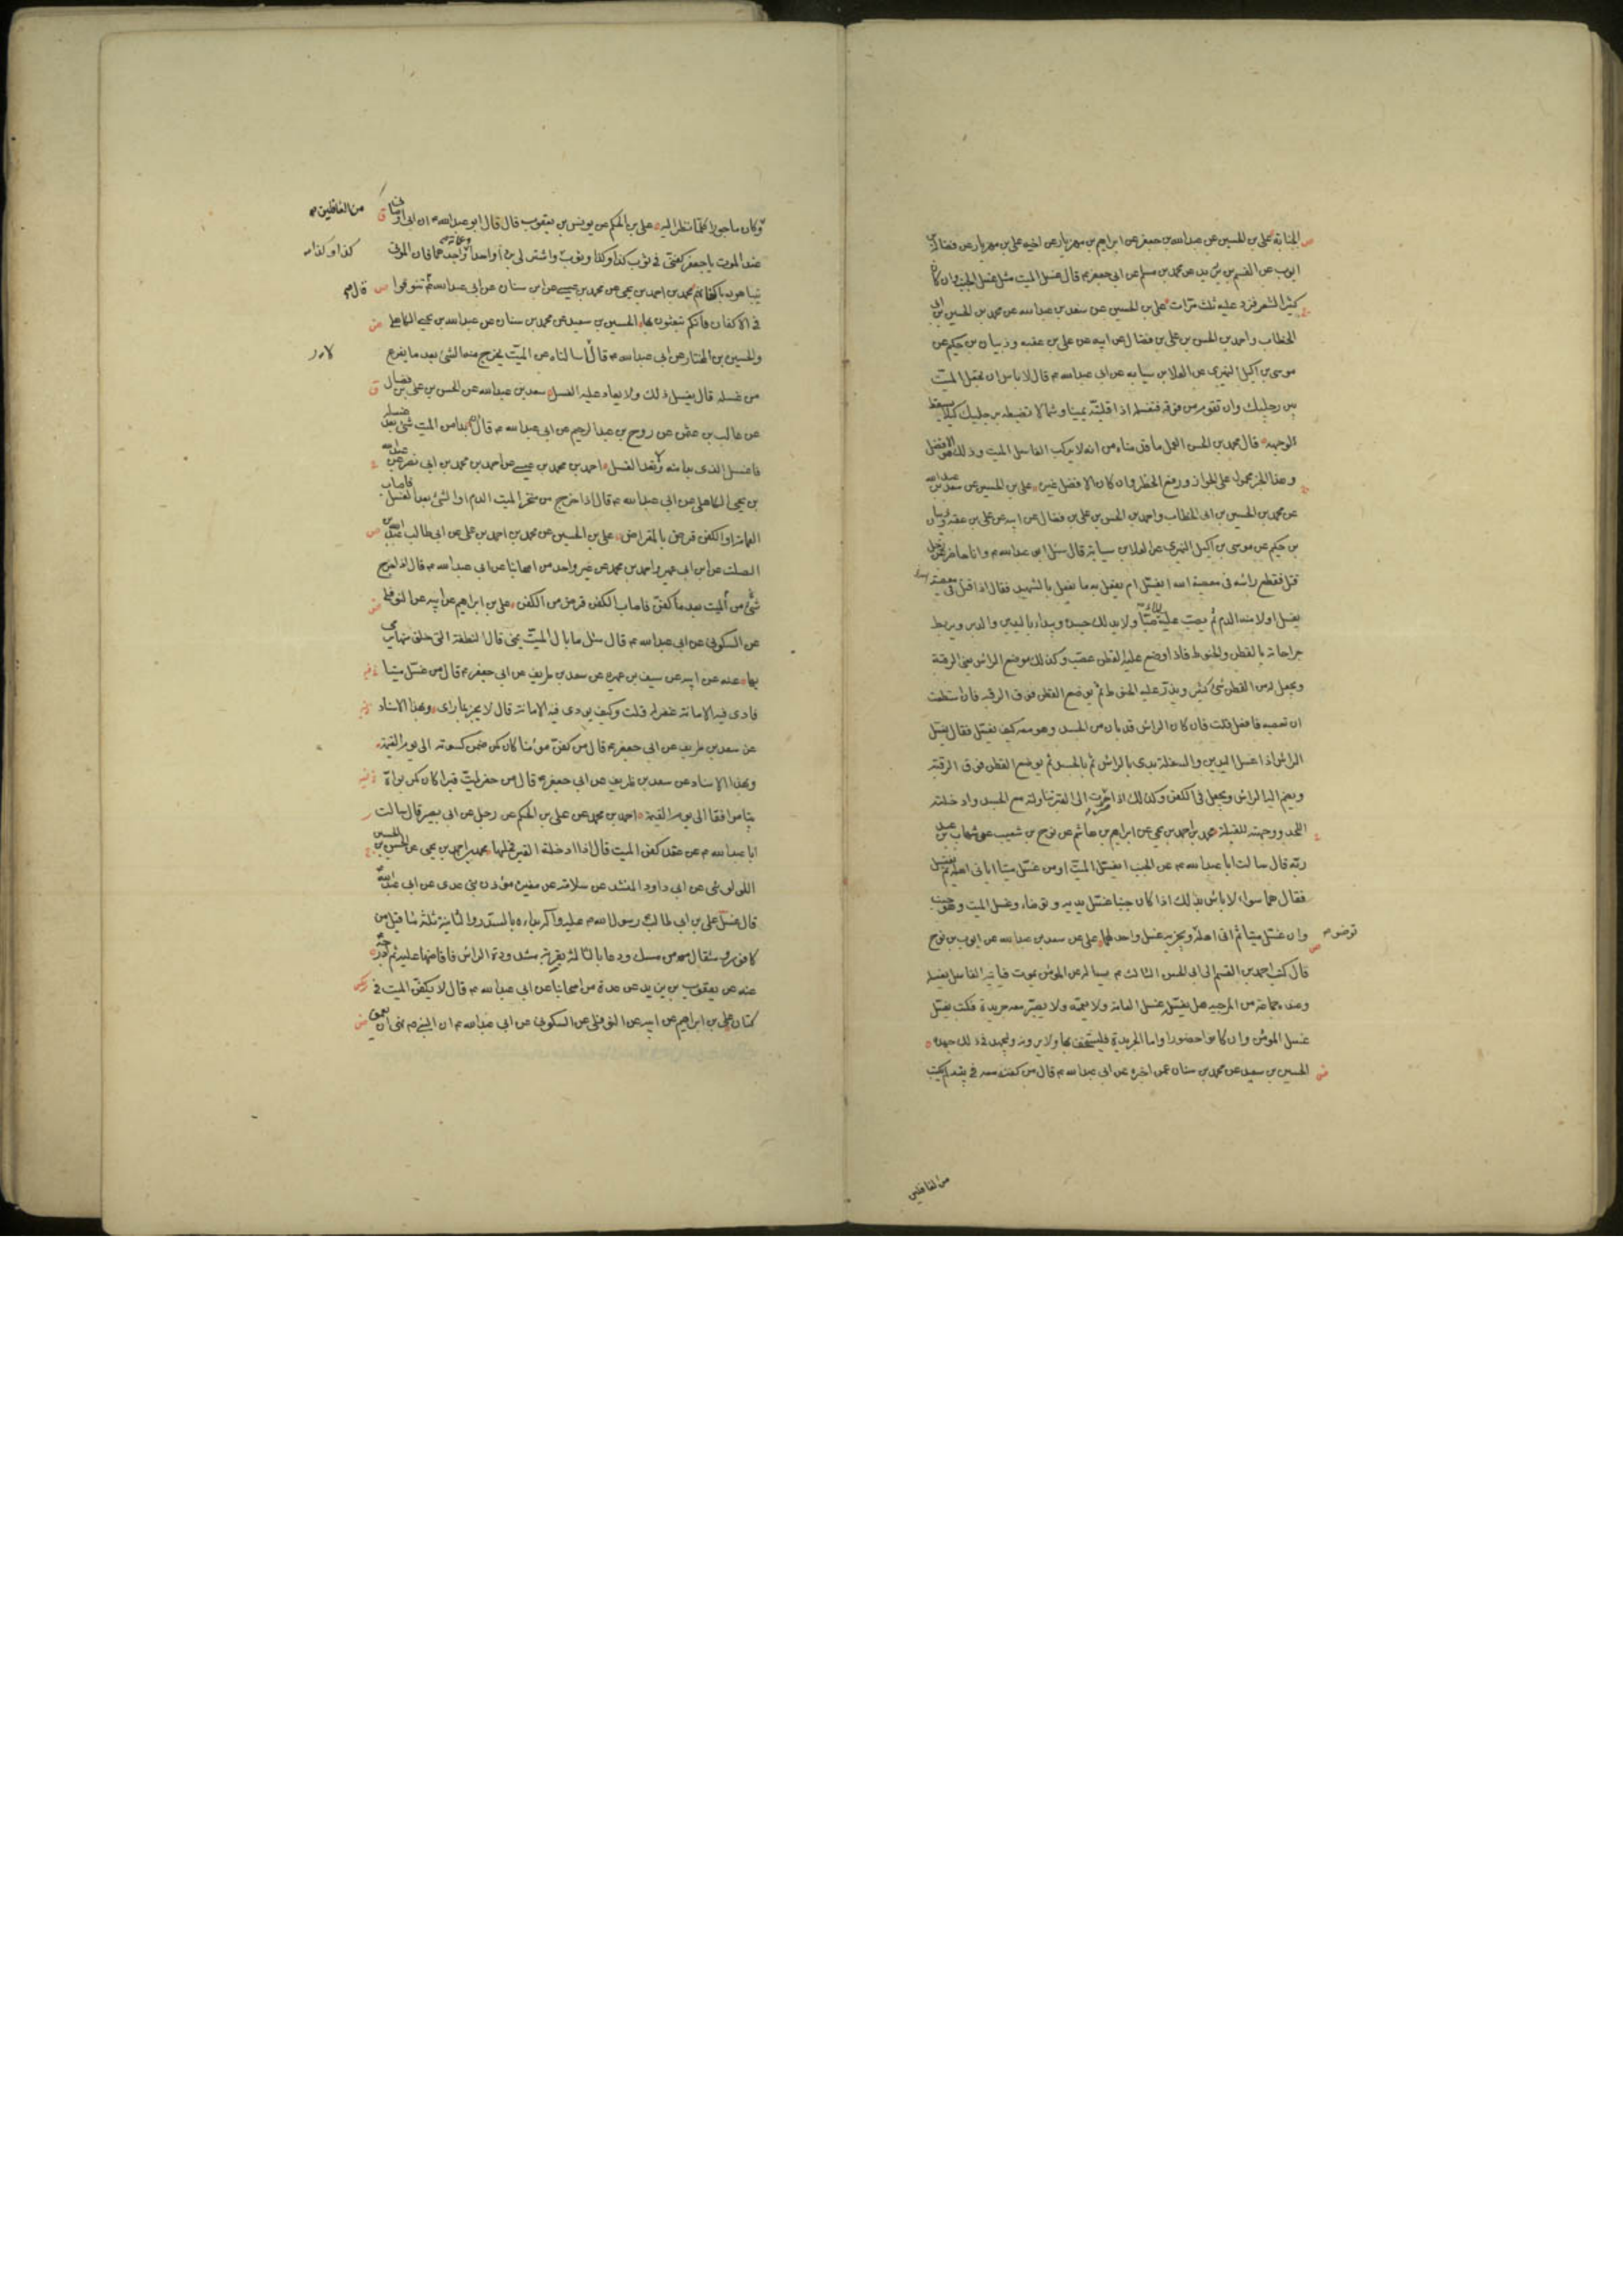 الجنابة علي بن الحسين عن عبدالله بن جعفر عن ابراهيم بن مهزيار عن اخيه علي بن مهزيار عن فضالة بن
ايوب عن القسم بن بريد عن محمد بن مسلم عن ابي جعفر ع قال غسل الميت مثل غسل الجنب وان كان
كثير الشعر فزد عليه ثلث مرات علي بن الحسين عن سعد بن عبدالله عن محمد بن الحسين بن ابي
الخطاب واحمد بن الحسن بن علي بن فضال عن ابيه عن علي بن عقبه وذبيان بن حكيم عن
موسى بن اكيل النميري عن العلا بن سيابه عن ابي عبدالله ع قال لا باس ان تجعل الميت
بين رجليك وان تقوم من فوقه فتغسله اذا قلبته يمينا وشمالا تضبطه برجليك كيلا يسقط
لوجهه قال محمد بن الحسن العمل ما قدمناه من انه لا يركب الغاسل الميت وذلك هو الافضل
وهذا الخبر محمول على الجواز ورفع الخطر وان كان الافضل غيره علي بن الحسين عن سعد بن عبدالله
عن محمد بن الحسين بن ابي الخطاب واحمد بن الحسن بن علي بن فضال عن ابيه عن علي بن عقبه وذبيان
بن حكيم عن موسى بن اكيل النميري عن العلا بن سيابة قال سئل ابو عبدالله ع وانا حاضر عن رجل
قتل فقطع راسه في معصية الله ايغسل ام يفعل به ما يفعل بالشهيد فقال اذا قتل في معصية الله
يغسل اولا منه الدم ثم يصب عليه الماء صبا ولا يدلك جسده ويبداء باليدين والدبر ويربط
جراحاته بالقطن والحنوط فاذا وضع عليه القطن عصب وكذلك موضع الراس يعني الرقبة
ويجعل له من القطن شئ كثير ويذر عليه الحنوط ثم يوضع القطن فوق الرقبه فان استطعت
ان تعصبه فافعل قلت فان كان الراس قد بان من الجسد وهو معه كيف يغسل فقال يغسل
الراس اذا غسل اليدين والسفلة بدى بالراس ثم بالجسد ثم يوضع القطن فوق الرقبة
ويضم اليه الراس ويجعل في الكفن وكذلك اذا صرت الى القبر تناولته مع الجسد وادخلته
اللحد ووجهته للقبلة محمد بن احمد بن يحيى عن ابراهيم بن هاشم عن نوح بن شعيب عن شهاب بن عبد
ربه قال سالت ابا عبدالله ع عن الجنب ايغسل الميت او من غسل ميتا اياتي اهله ثم يغتسل
فقال هما سواء لا باس بذلك اذا كان جنبا غسل يديه وتوضاء وغسل الميت وهو جنب
وان غسل ميتا ثم اتى اهله ويجزيه غسل واحد لهما علي عن سعد بن عبدالله عن ايوب بن نوح
توضوه
قال كتب احمد بن القسم الى ابي الحسن الثالث ع يساله عن المومن يموت فياتيه الغاسل يغسله
وعنده جماعة من المرجيه هل يغسله غسل العامة ولا يعممه ولا يصير معه جريدة فكتب يغسل
غسل المومن وان كانوا حضورا واما الجريدة فليستخف بها ولا يرونه وليجهد في ذلك جهده
الحسين بن سعيد عن محمد بن سنان عمن اخبره عن ابي عبدالله ع قال من كان كفنه معه في بيته لم يكتب
من الغافلين
من الغافلين
وكان ماجورا كلما نظر اليه علي بن الحكم عن يونس بن يعقوب قال قال ابو عبدالله ع ان ابي اوصاني
عند الموت يا جعفر كفني في ثوب كذا وكذا وثوب كذا وكذا واشتر لي بردا واحدا وعمامة واجدهما فان الموتى
يتباهون باكفانهم محمد بن احمد بن يحيى عن محمد بن عيسى عن ابن سنان عن ابي عبدالله ع قال تنوقوا
في الاكفان فانكم تبعثون بها الحسين بن سعيد عن محمد بن سنان عن عبدالله بن يحيى الكاهلي
والحسين بن المختار عن ابي عبدالله ع قالا سالناه عن الميت يخرج منه الشئ بعد ما يفرغ
من غسله قال يغسل ذلك ولا يعاد عليه الغسل سعد بن عبدالله عن الحسن بن علي بن فضال
عن غالب بن عثمن عن روح بن عبدالرحيم عن ابي عبدالله ع قال ان بدا من الميت شئ بعد غسله
فاغسل الذي بدا منه ولا تعد الغسل احمد بن محمد بن عيسى عن احمد بن محمد بن ابي نصر عن عبدالله
بن يحيى الكاهلي عن ابي عبدالله ع قال اذا خرج من منخر الميت الدم او الشئ بعد الغسل فاصاب
العمامة او الكفن قرض بالمقراض علي بن الحسين عن محمد بن احمد بن علي عن ابي طالب عبدالله بن
الصلت عن ابن ابي عمير واحمد بن محمد عن غير واحد من اصحابنا عن ابي عبدالله ع قال اذا خرج
شئ من الميت بعد ما كفن فاصاب الكفن قرض من الكفن علي بن ابراهيم عن ابيه عن النوفلي
عن السكوني عن ابي عبدالله ع قال سئل ما بال الميت يمني قال النطفة التي خلق منها يرمي
بها عنه عن ابيه عن سيف بن عميره عن سعد بن طريف عن ابي جعفر ع قال من غسل ميتا
فادى فيه الامانة غفر له قلت وكيف يودى فيه الامانة قال لا يخبر بما راى وبهذا الاسناد
عن سعد بن طريف عن ابي جعفر ع قال من كفن مومنا كان كمن ضمن كسوته الى يوم القيمة
وبهذا الاسناد عن سعد بن طريف عن ابي جعفر ع قال من حفر لميت قبرا كان كمن بواه
بيتا موافقا الى يوم القيمة احمد بن محمد عن علي بن الحكم عن رجل عن ابي بصير قال سالت
ابا عبدالله ع عن عقد كفن الميت قال اذا ادخلته القبر فحلها محمد بن احمد بن يحيى عن الحسن بن الحسين
اللولوئي عن ابي داود المنشد عن سلامة عن مغيرة موذن بني عدي عن ابي عبدالله
قال غسل علي بن ابي طالب رسول الله ص بداءه بالسدر والثانية ثلثة مثاقيل من
كافور ومثقال من مسك ودعا بالثالثة بقربة مشدودة الراس فافاضها عليه ثم ادرجه
عنه عن يعقوب بن يزيد عن عدة من اصحابنا عن ابي عبدالله ع قال لا يكفن الميت في
كتان علي بن ابراهيم عن ابيه عن النوفلي عن السكوني عن ابي عبدالله ع ان النبي ص نهى ان يعمق